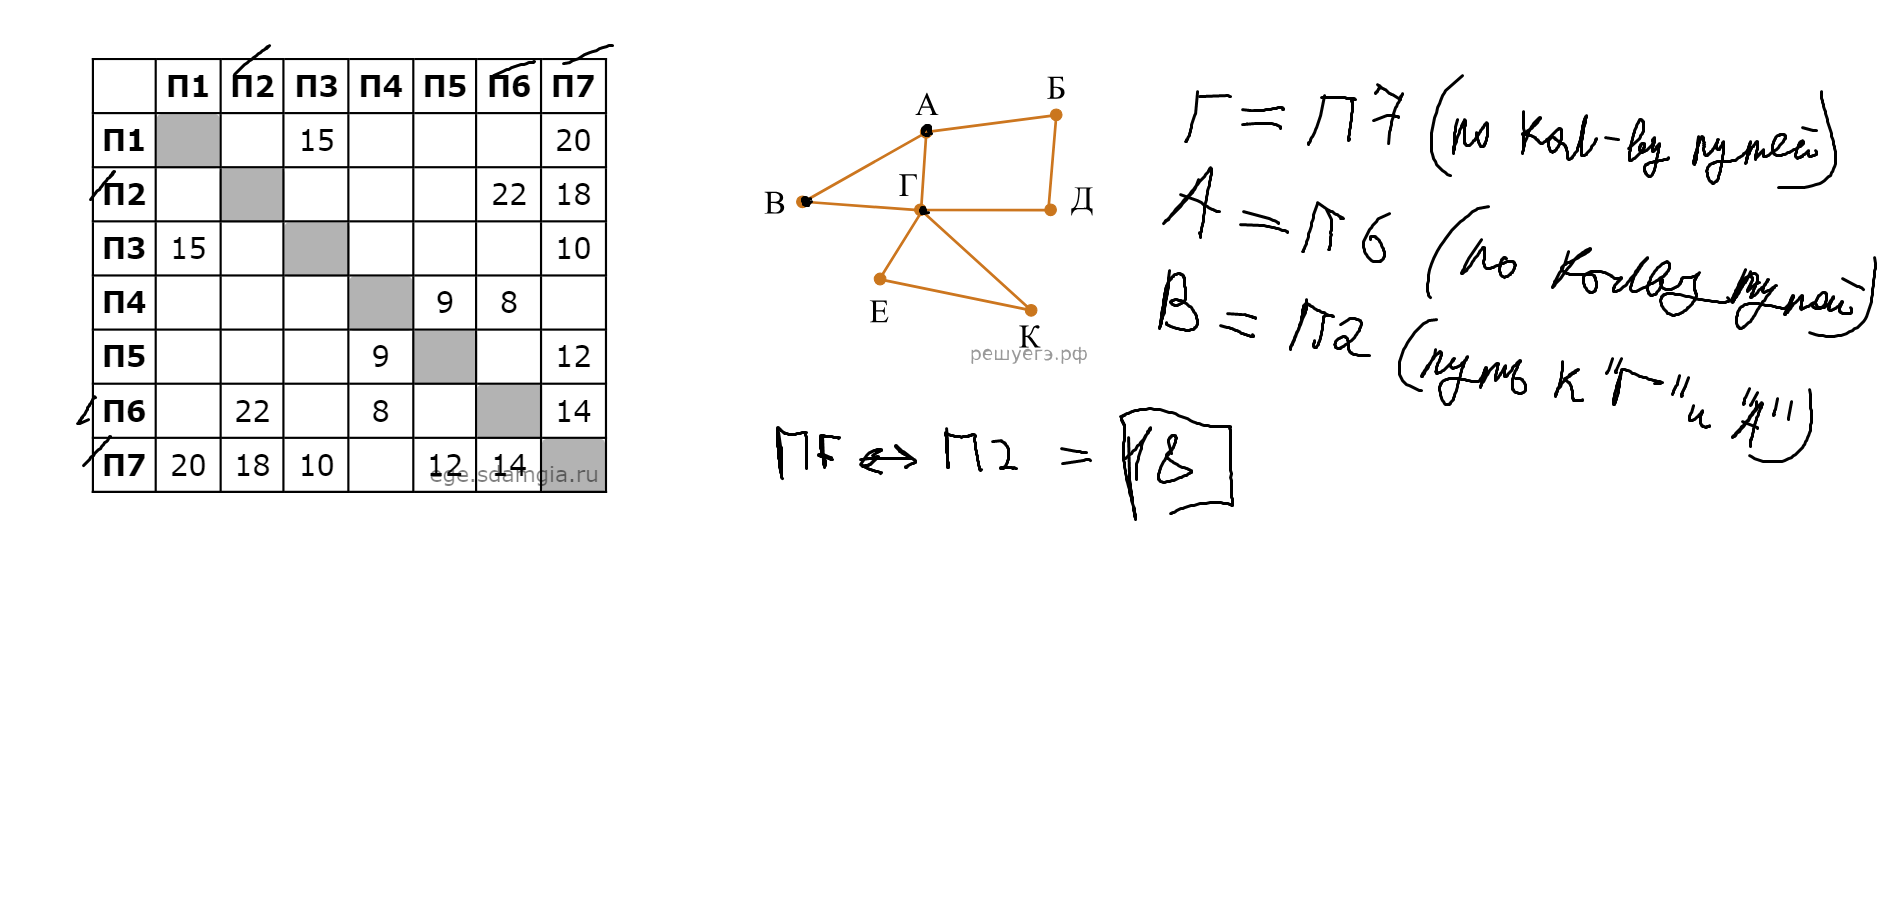 П1 П2 П3 П4 П5 П6 П7
П1 15 20
П2 22 18
П3 15 10
П4 9 8
П5 9 12
П6 22 8 14
П7 20 18 10 12 14
ege.sdamgia.ru
А
Б
В
Г
Д
Е
К
решуегэ.рф
Г = П7 (по кол-ву путей)
А = П6 (по кол-ву путей)
В = П2 (путь к "Г" и "А")
П7 ↔ П2 = 18